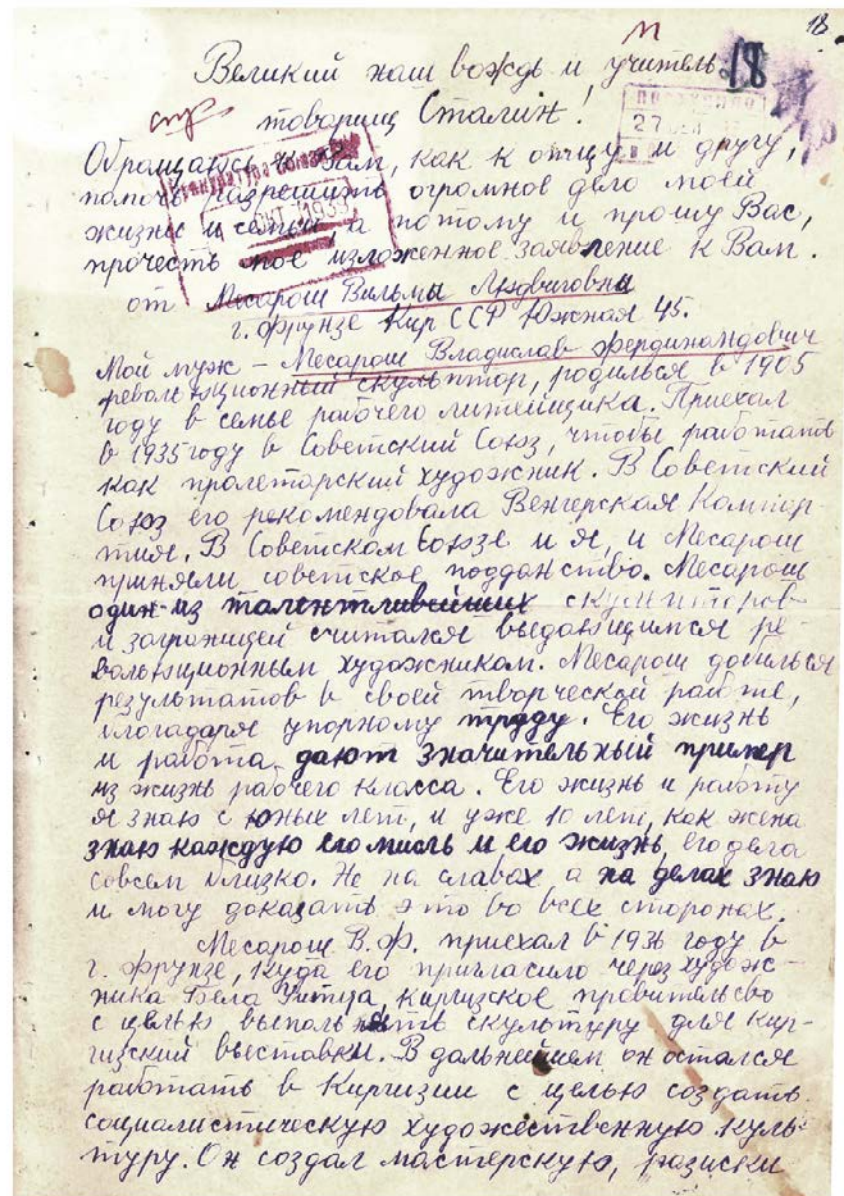 18
18
Великий наш вождь и учитель
товарищ Сталин!
27
ОКТ 1939
Обращаюсь к Вам, как к отцу и другу,
помочь разрешить огромное дело моей
жизни и семьи, а потому и прошу Вас,
прочесть мое изложенное заявление к Вам.
от Месарош Вильмы Людвиговны
г. Фрунзе Кир ССР Южная 45.
Мой муж – Месарош Владислав Фердинандович
революционный скульптор, родился в 1905
году в семье рабочего литейщика. Приехал
в 1935 году в Советский Союз, чтобы работать
как пролетарский художник. В Советский
Союз его рекомендовала Венгерская Компар-
тия. В Советском Союзе и я, и Месарош
приняли советское подданство. Месарош
один из талентливейших скульпторов
и заграницей считался выдающимся ре-
волюционным художником. Месарош добился
результатов в своей творческой работе,
благодаря упорному труду. Его жизнь
и работа дают значительный пример
из жизнь рабочего класса. Его жизнь и работу
я знаю с юных лет, и уже 10 лет, как жена
знаю каждую его мысль и его жизнь, его дела
совсем близко. Не на словах а на делах знаю
и могу доказать это во всех сторонах.
Месарош В. Ф. приехал в 1936 году в
г. Фрунзе, куда его пригласило через худож-
ника Бела Уитца, Киргизское правительство
с целью выполнять скульптуру для кир-
гизский выставки. В дальнейшем он остался
работать в Киргизии с целью создать
социалистическую художественную куль-
туру. Он создал мастерскую,